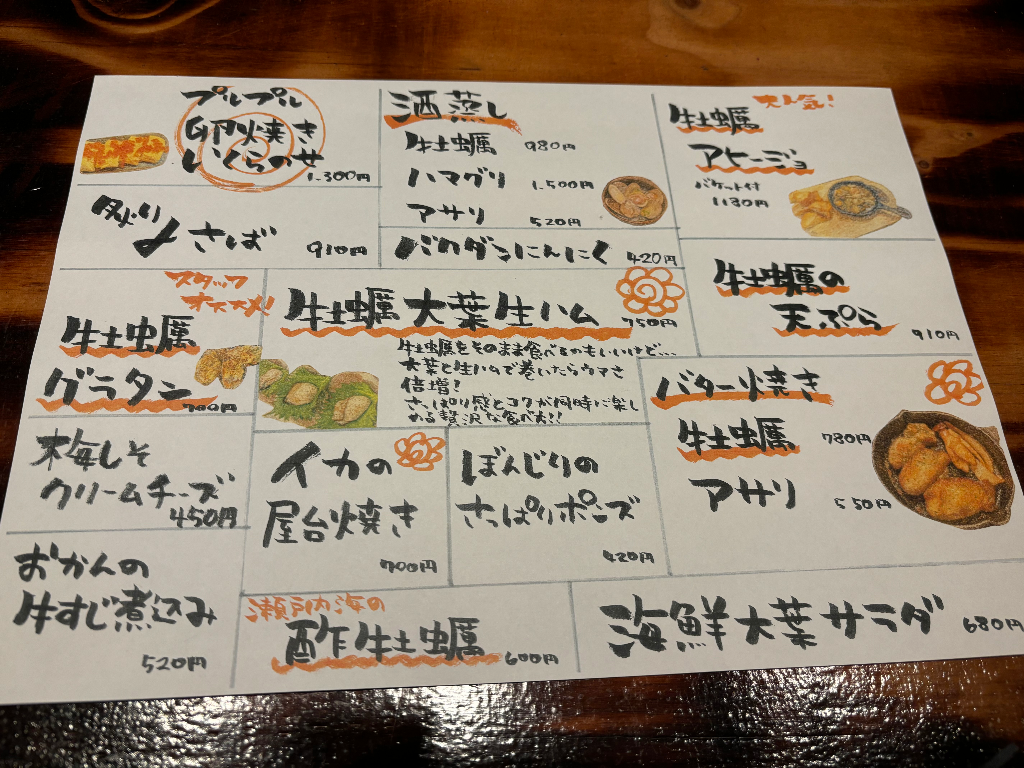 プルプル
卵焼き
いくらのせ
1.300円
炙り〆さば
910円
酒蒸し
牡蠣 980円
ハマグリ 1.500円
アサリ 520円
バクダンにんにく 420円
大人気!
牡蠣
アヒージョ
バケット付
1180円
牡蠣の
天ぷら
910円
スタッフ
オススメ!
牡蠣
グラタン
700円
牡蠣大葉生ハム
750円
牡蠣をそのまま食べるのもいいけど…
大葉と生ハムで巻いたらウマさ
倍増!
さっぱり感とコクが同時に楽し
める贅沢な食べ方!!
バター焼き
牡蠣 780円
アサリ 550円
梅しそ
クリームチーズ
450円
イカの
屋台焼き
700円
ぼんじりの
さっぱりポンズ
420円
おかんの
牛すじ煮込み
520円
瀬戸内海の
酢牡蠣
600円
海鮮大葉サラダ
680円